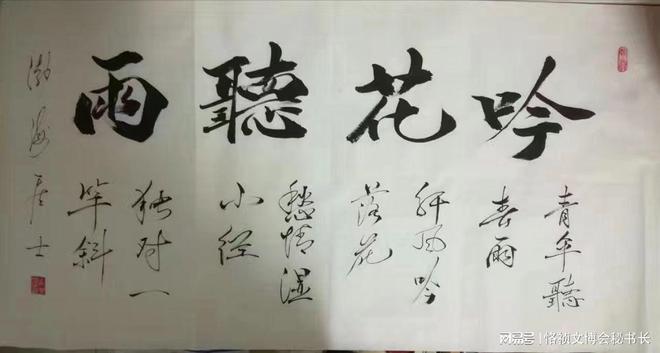 吟花聽雨
青伞聽
春雨
纤風吟
落花
愁情湿
小径
独对一
竿斜
渤海居士
搜狐号@恪祯文博会秘书长